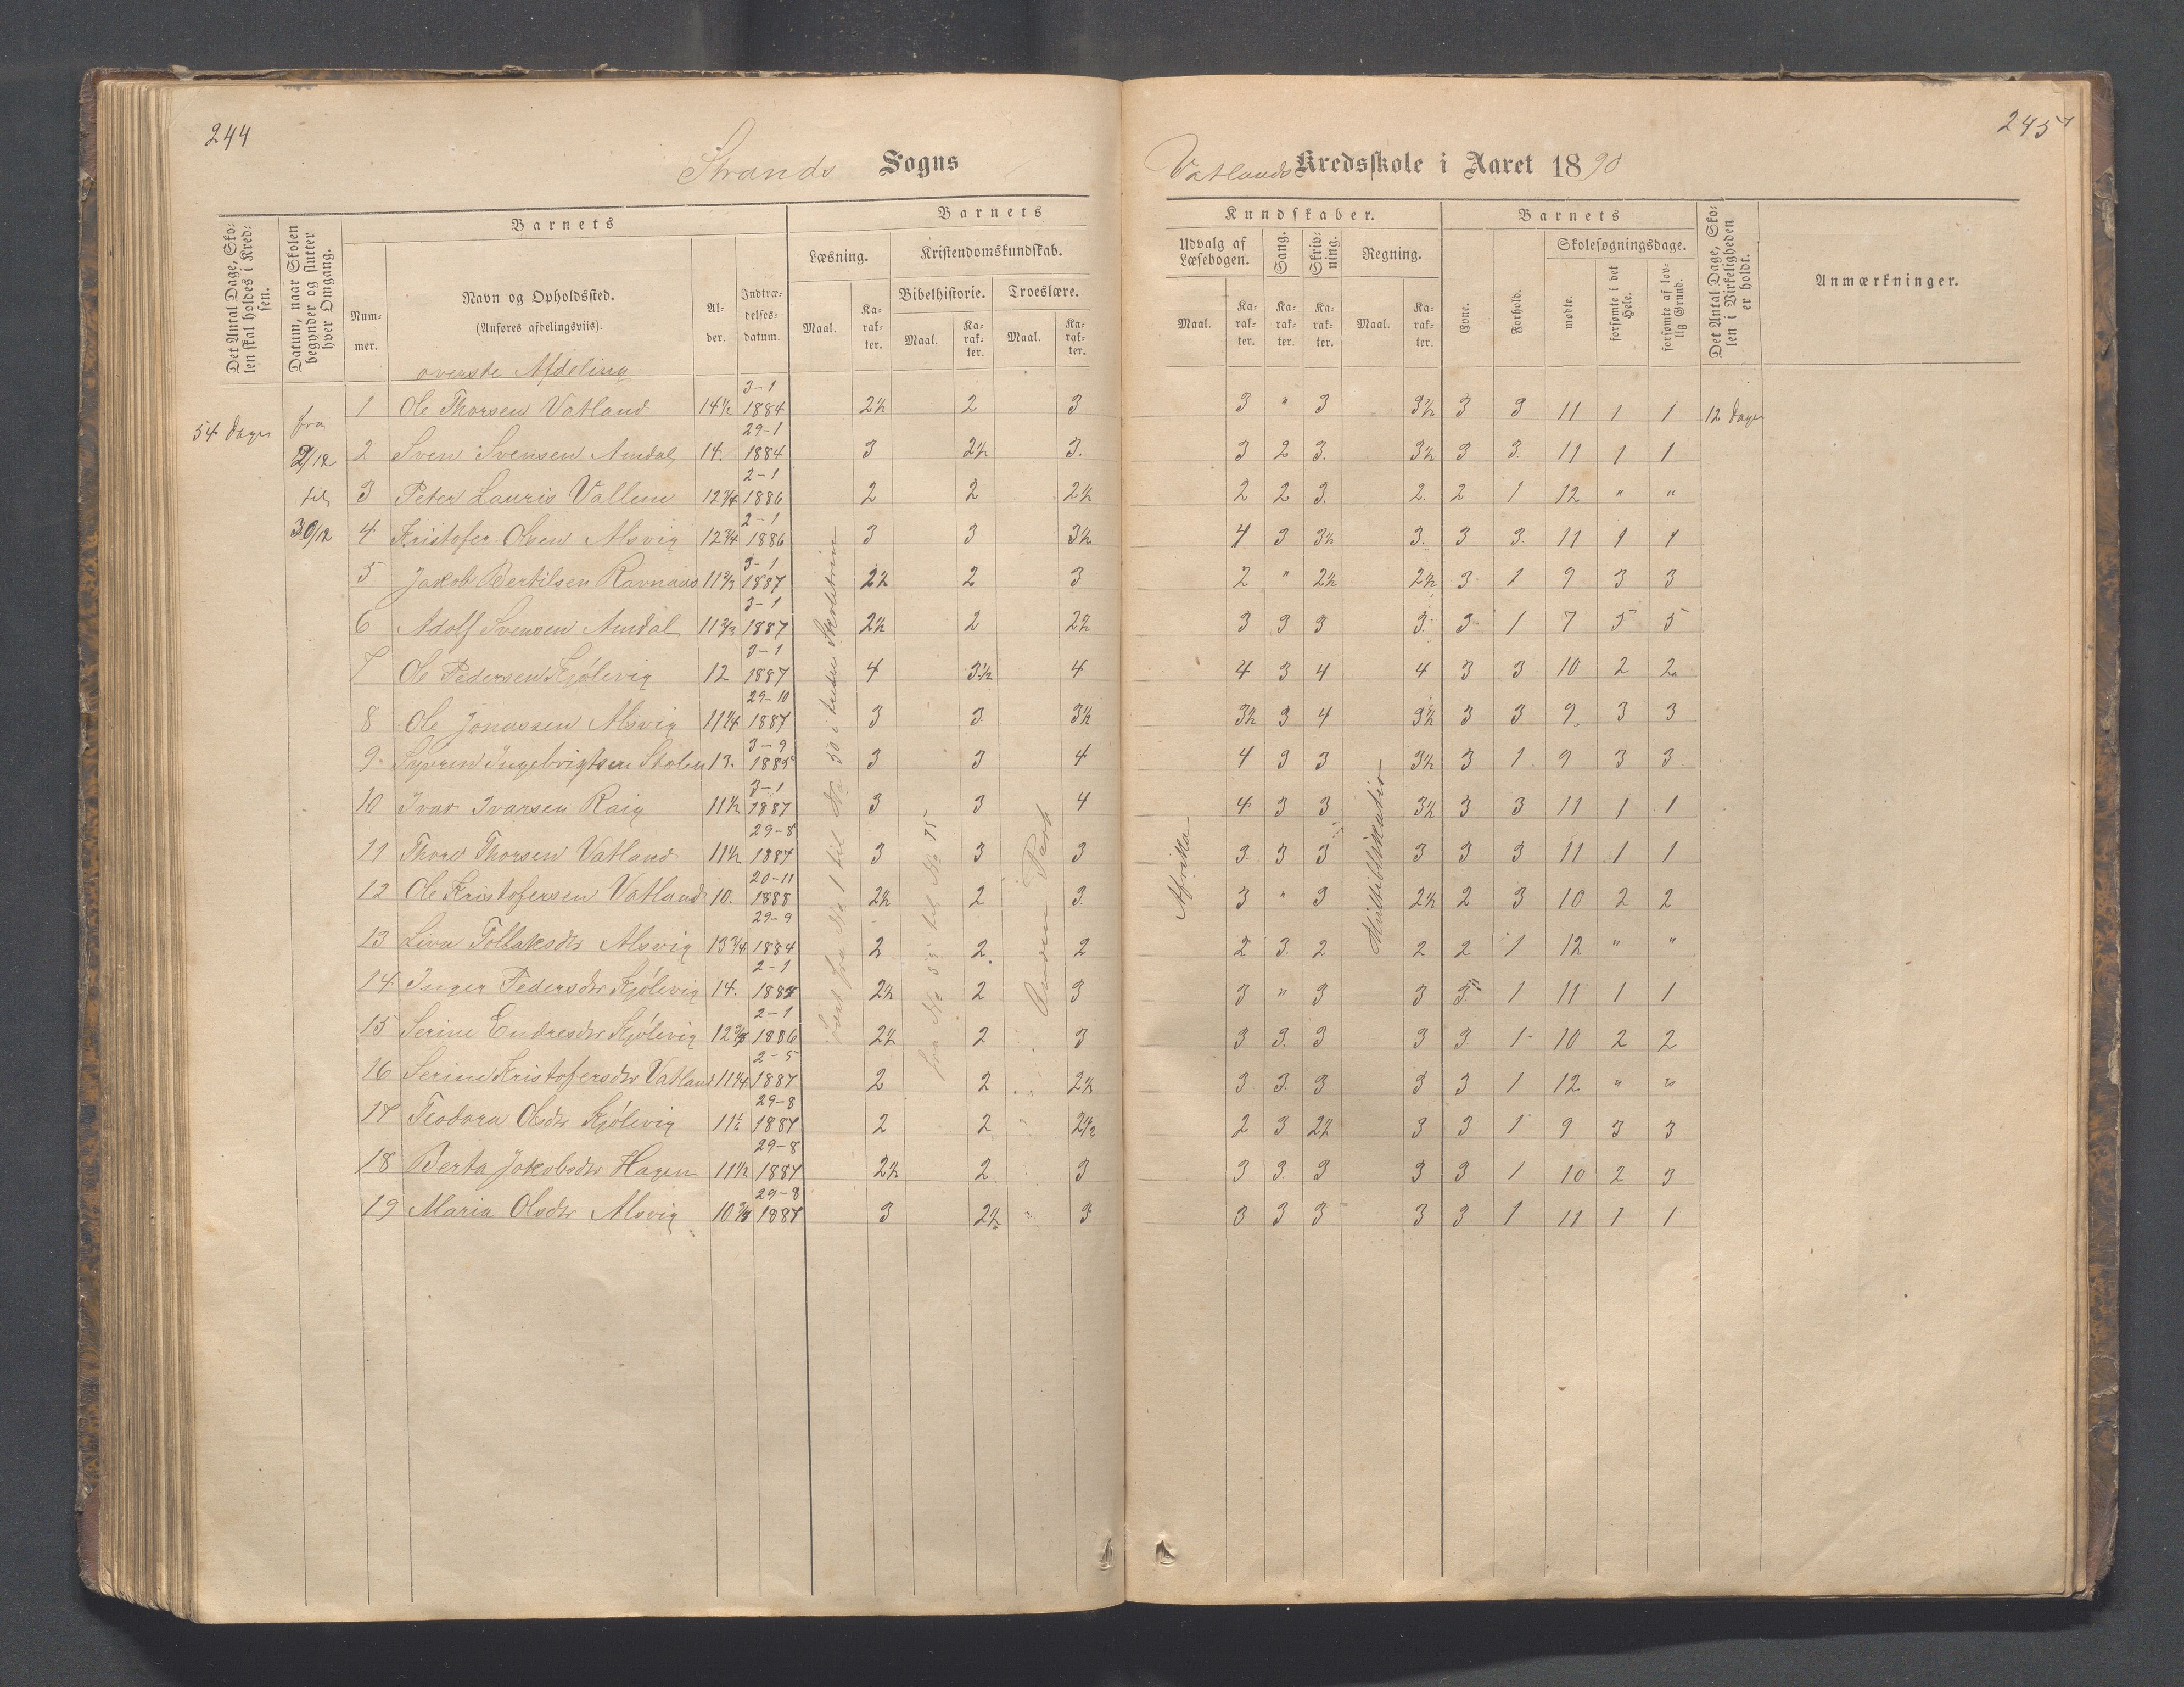 244
Strands Sogns
Det Antal Dage, Sko-
len skal holdes i Kred-
sen.
Datum, naar Skolen
begynder og slutter
hver Omgang.
Barnets
Num-
mer.
Navn og Opholdssted.
(Anføres afdelingsviis).
Al-
der.
Indtræ-
delses-
datum.
Barnets
Læsning.
Kristendomskundskab.
Bibelhistorie. Troeslære.
Maal. Ka-
rak-
ter. Maal. Ka-
rak-
ter. Maal. Ka-
rak-
ter.
overste Afdeling
54 dage
fra 2/12 til 30/12
1 Ole Thorsen Vatland 14½ 3-1 1884 2½ 2 3
2 Sven Svensen Amdal 14. 29-1 1884 3 2½ 3.
3 Peter Lauris Vallem 12¾ 2-1 1886 2 2 2½
4 Kristofer Olsen Alsvig 12¾ 2-1 1886 3 3 3½
5 Jakob Bertilsen Ravnaas 11⅔ 3-1 1887 2½ 2 3
6 Adolf Svensen Amdal 11⅔ 3-1 1887 2½ 2 2½
7 Ole Pedersen Kjølevig 12 3-1 1887 4 3½ 4
8 Ole Jonassen Alsvig 11¼ 29-10 1887 3 3 3½
9. Ingebrigtsen 13. 3-9 1885 3 3 4
10 Ivar Ivarsen Raig 11½ 3-1 1887 3 3 4
11 Thore Thorsen Vatland 11½ 29-8 1887 3 3 3
12 Ole Kristofersen Vatland 10. 20-11 1888 2½ 2 3.
13 Lena Tollaksdtr Alsvig 13¾ 29-9 1884 2 2. 2
14 Inger Pedersdtr Kjølevig 14. 2-1 1884 2½ 2 3
15 Serine Endresdtr Kjølevig 12⅔ 2-1 1886 2½ 2 3
16 Serine Kristofersdtr Vatland 11¼ 2-5 1887 2 2 2½
17 Teodora Olsdtr Kjølevig 11½ 29-8 1887 2 2 2½
18 Berta Jakobsdtr Hagen 11½ 29-8 1887 2½ 2 3
19 Maria Olsdtr Alsvig 10¾ 29-8 1887 3 2½ 3
Læst fra No 1 til No 50 i
fra No 59 til No 75
Anden Part
245
Vatlands Kredsskole i Aaret 1890
Kundskaber.
Udvalg af
Læsebogen.
Sang.
Skriv-
ning.
Regning.
Maal. Ka-
rak-
ter. Ka-
rak-
ter. Ka-
rak-
ter. Maal. Ka-
rak-
ter.
Barnets
Evne.
Forhold.
Skolesøgningsdage.
mødte.
forsømte i det
Hele.
forsømte af lov-
lig Grund.
Det Antal Dage, Sko-
len i Virkeligheden
er holdt.
Anmærkninger.
3 " 3 3½ 3 3 11 1 1 12 dage
3 2 3. 3½ 3 3. 11 1 1
2 2 3. 2. 2 1 12 " "
4 3 3½ 3. 3 3. 11 1 1
2 " 2½ 2½ 3 1 9 3 3
3 3 3 3. 3 1 7 5 5
4 3 4 4 3 3 10 2 2
3½ 3 4 3½ 3 3 9 3 3
4 3 3 3½ 3 1 9 3 3
4 3 3 3½ 3 3 11 1 1
3. 3 3 3 3 3 11 1 1
3 " 3 2½ 2 3 10 2 2
2 3. 2 2 2 1 12 " "
3 " 3 3 3 1 11 1 1
3 3. 3 3 3 1 10 2 2
3 3. 3 3 3 1 12 " "
2 3 2½ 3 3 1 9 3 3
3 3. 3 3 3 1 10 2 3
3 3 3 3 3 1 11 1 1
Afrika